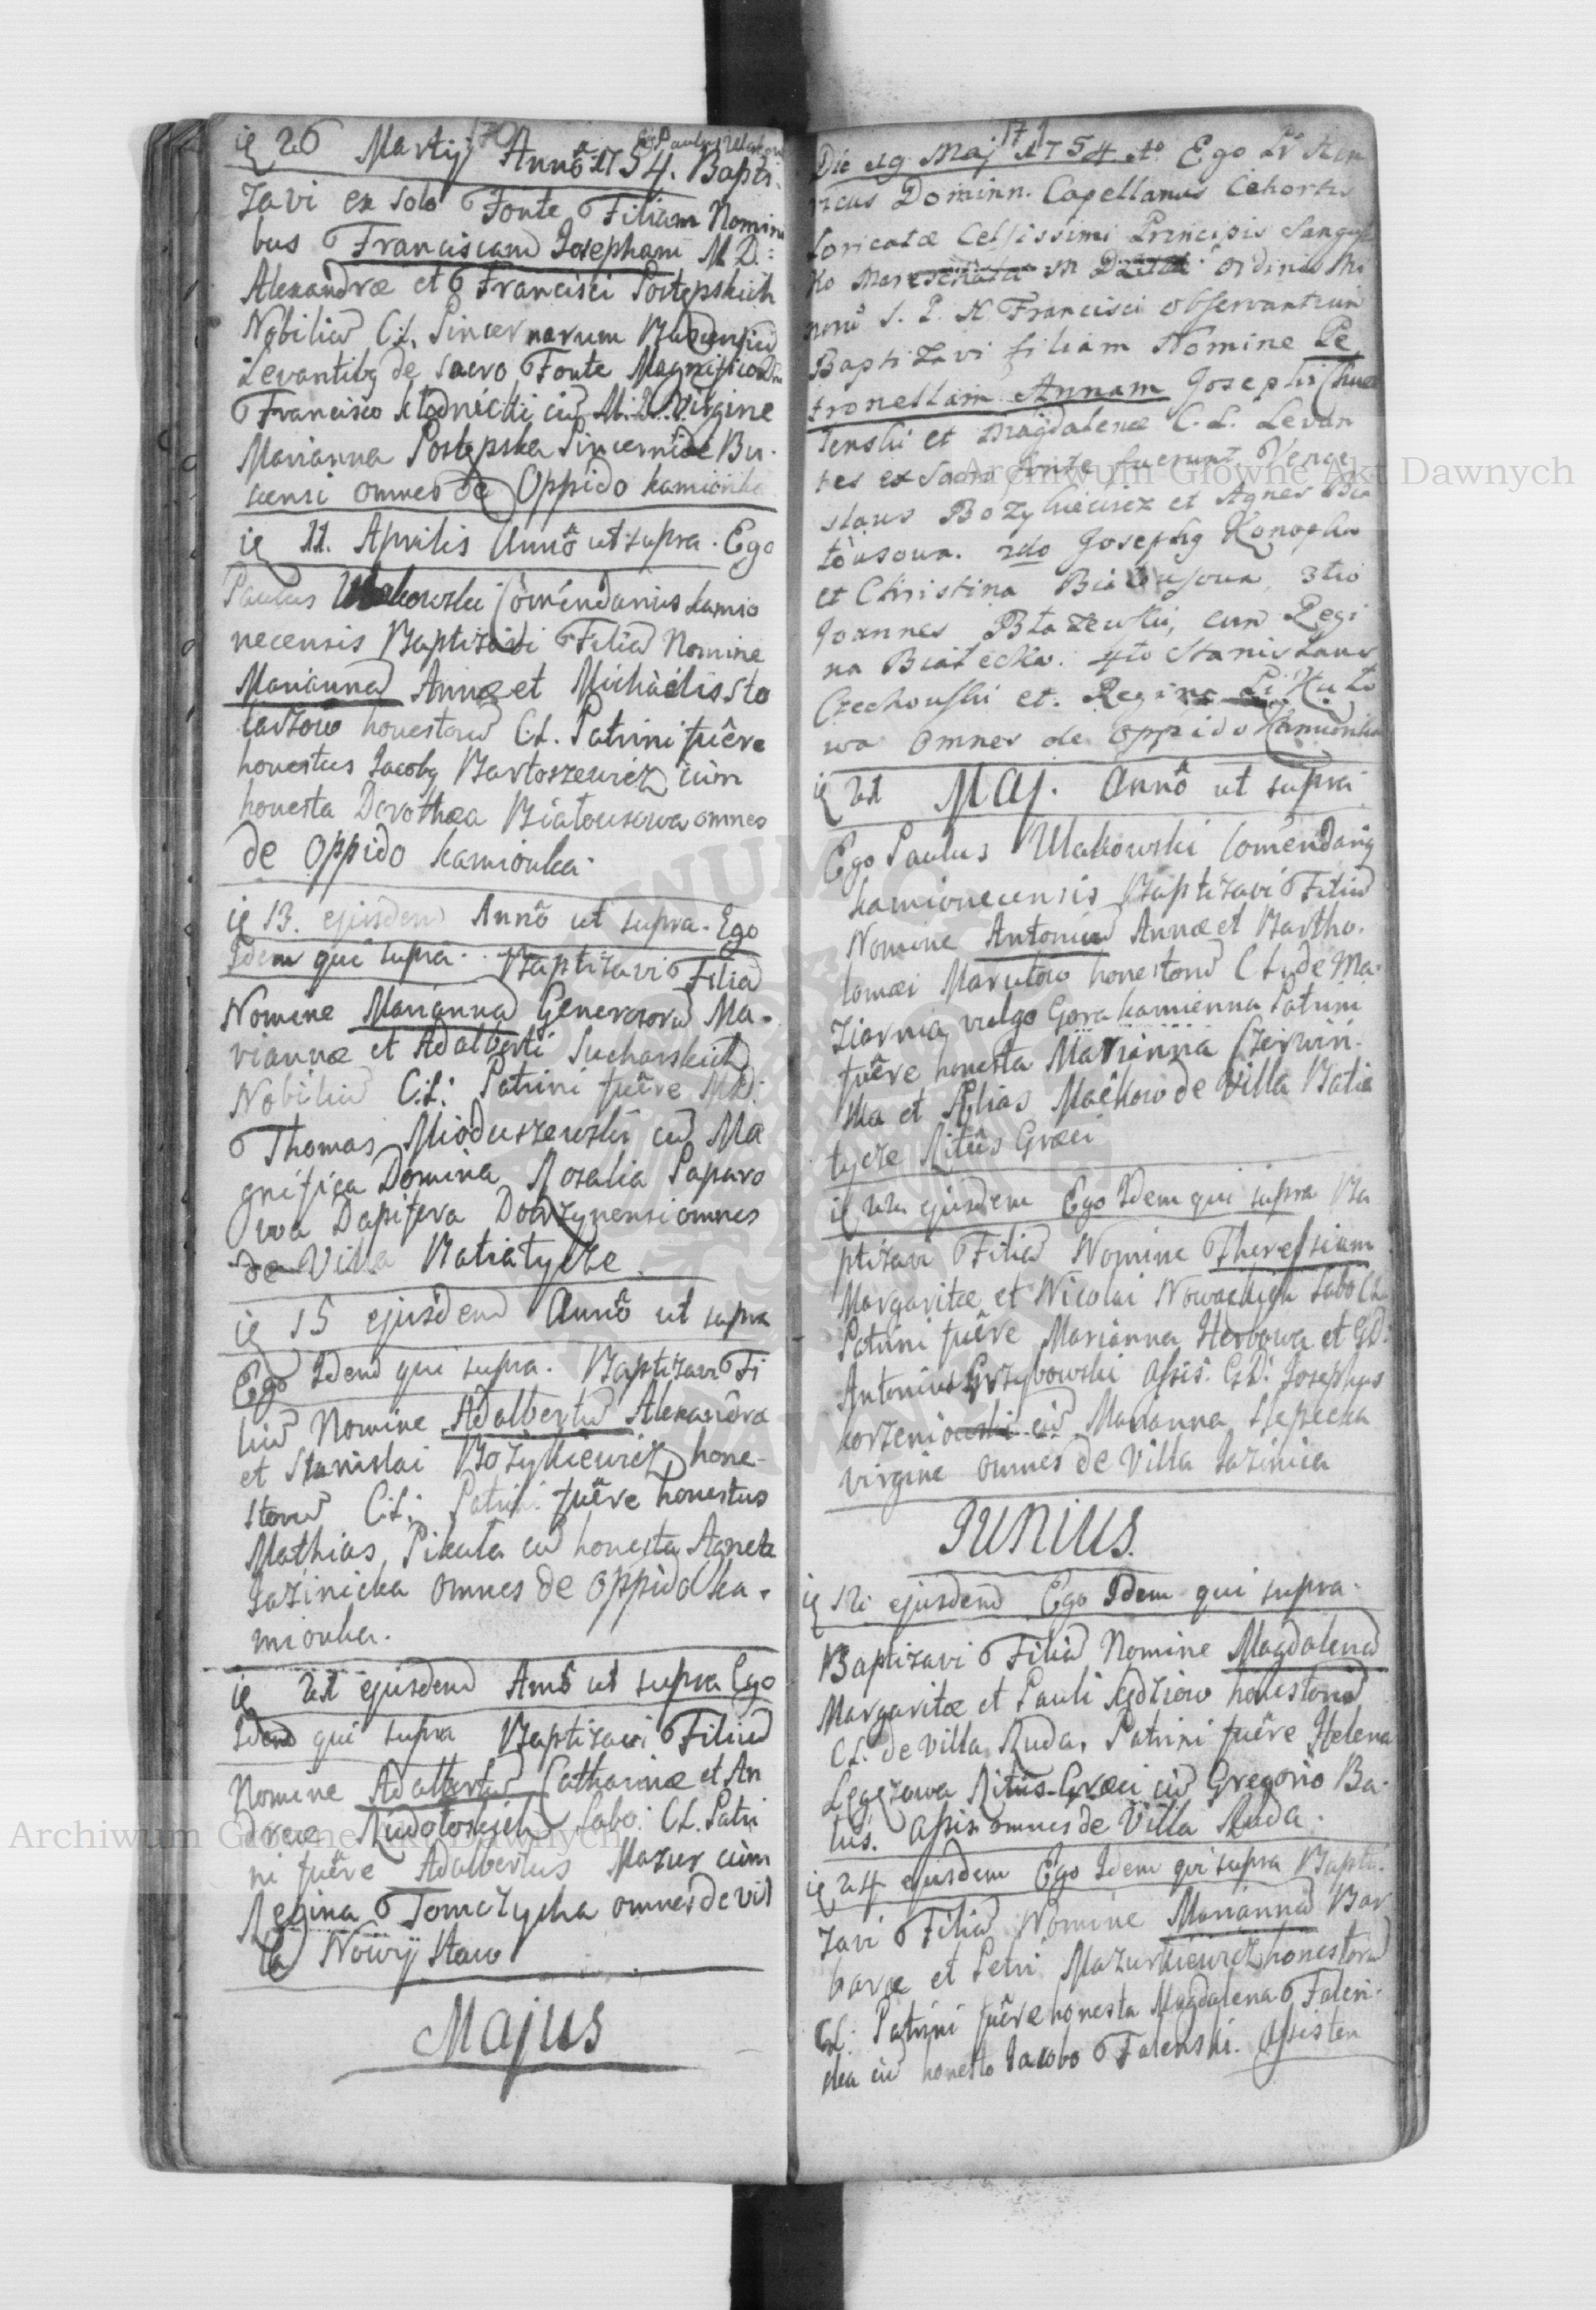 ie 26 Martij Annô 1754. Bapti-
zavi ex solo Fonte Filiam Nomini
bus Franciscam Josepham M. D.:
Alexandræ et Francisci Postępskich
Nobiliũ C.L. Pincernarum
Levantibg de Sacro Fonte Magnifico Dno
Francisco Kłodnicki cũ M. D. Virgine
Marianna Postępska Pincernide Bu-
scensi omnes de Oppido Kamionka
ie 11. Aprilis Annô ut supra. Ego
Paulus Ulakowski Com̃endarius Kamio
necensis Baptizavi Filiã Nomine
Mariannã Annæ et Michaelis Sto
larzow honestorũ C.L. Patrini fuêre
honestus Jacobg Bartoszewicz cùm
honesta Dorothea Białousowa omnes
de Oppido Kamionka.
ie 13. ejusdem Annô ut supra. Ego
Idem qui supra. Baptizavi Filiã
Nomine Mariannã Generosorũ Ma-
riannæ et Adalberti Sucharskich
Nobiliũ C.L: Patrini fuêre M.D:
Thomas Mioduszewski cũ Ma
gnifica Domina Rosalia Paparo
wa Dapifera Dobrzynensi omnes
de Villa Batiatycze.
ie 15 ejusdem Annô ut supra
Ego Idem qui supra. Baptizavi Fi
liũ Nomine Adalbertũ Alexandra
et Stanislai Bozykiewicz hone-
storũ C.L: Patrini fuêre honestus
Mathias Pikuła cũ honesta Agneta
Jazinicka omnes de oppido Ka-
mionka.
ie 21 ejusdem Annô ut supra Ego
Idem qui supra Baptizavi Filiũ
Nomine Adalbertũ Catharinæ et An
dreæ Labo: C.L. Patri
ni fuêre Adalbertus Mazur cùm
Regina Tomczycha omnes de vil
la Nowÿ Staw
Majus
171
Die 19 Maj 1754to Ego Fr Hen
ricus Dominn. Capellanus Cohortis
loricatæ Celsissimi Principis Sangusz
ko Mareschalci M D Lit. Ordinis Mi
norũ S. P. N. Francisci Observantium
Baptizavi filiam Nomine Pe
tronellam Annam Josephi
et Magdalenæ C. L. Levan
tes ex Sacro fonte fuerunt Vence
slaus Bozykiewicz et Agnes Bia
łousowa. 2do Josephg Konopka
et Christina Białousowa, 3tio
Joannes Błazewski, cum Regi
na Białecka. 4to Stanislaus
Czechowski et Regina
wa Omnes de Oppido Kamionka
ie 21 Maj. Annô ut supra
Ego Paulus Ulakowski Com̃endarig
Kamionecensis Baptizavi Filiũ
Nomine Antoniũ Annæ et Bartho-
lomæi Marutow honestorũ C L. de Ma-
ziarnia vulgo Gora kamienna Patrini
fuêre honesta Marianna Czerwin-
ska et Elias Maćkow de Villa Batia
tycze Ritûs Græci
ie 22 ejusdem Ego Idem qui supra Ba
ptizavi Filiã Nomine Theressiam
Margaritæ et Nicolai Nowackich Labo CL
Patrini fuêre Marianna Herbowa et G.D:
Antonius Grzybowski Assis. G.D: Josephus
Korzeniowski cũ Marianna Rzepecka
virgine omnes de Villa Jazinica
Junius.
ie 12 ejusdem Ego Idem qui supra.
Baptizavi Filiã Nomine Magdalenã
Margaritæ et Pauli Kędziow honestorũ
CL. de villa Ruda. Patrini fuêre Helena
Legezowa Ritûs Græci cũ Gregorio Ba-
lus. Assis: omnes de Villa Ruda.
ie 24 ejusdem Ego Idem qui supra Bapti-
zavi Filiã Nomine Mariannã Bar
baræ et Petri Mazurkiewicz honestorũ
CL. Patrini fuêre honesta Magdalena Falen-
ska cũ honesto Jacobo Falenski. Assisten
Archiwum Główne Akt Dawnych
Archiwum Główne Akt Dawnych